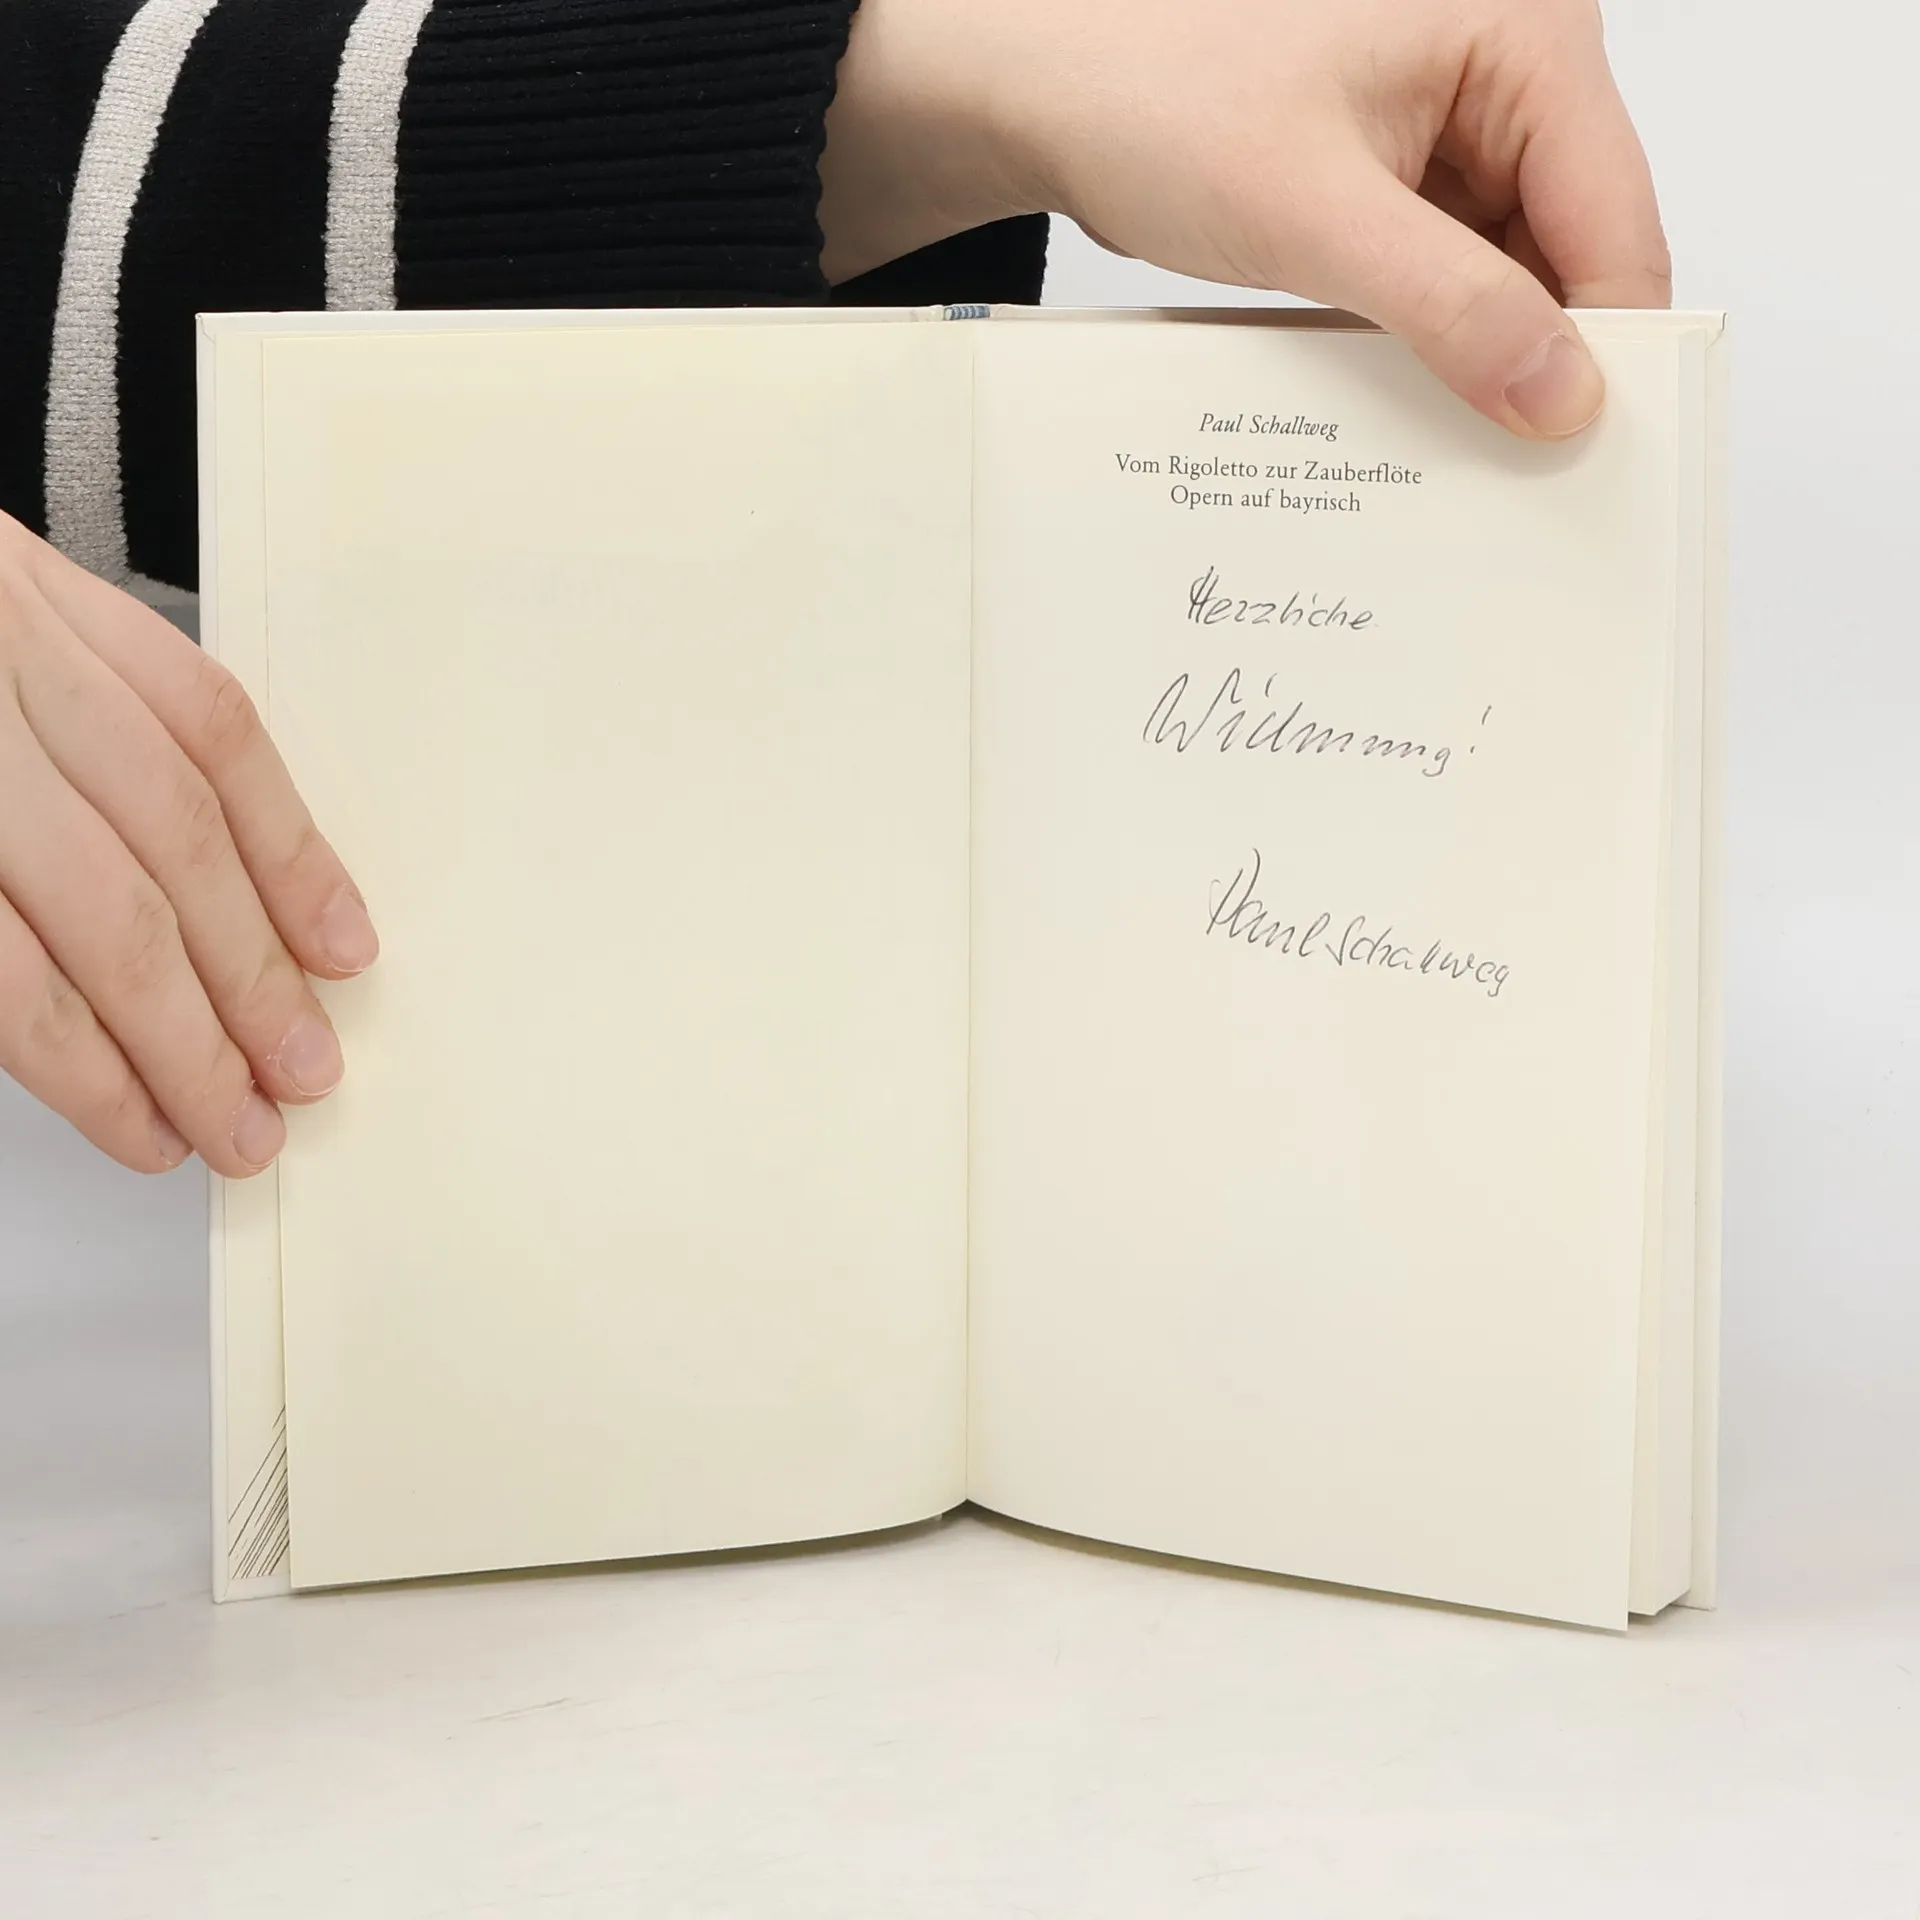 Paul Schallweg
Vom Rigoletto zur Zauberflöte
Opern auf bayrisch
Herzliche
Widmung!
Paul Schallweg